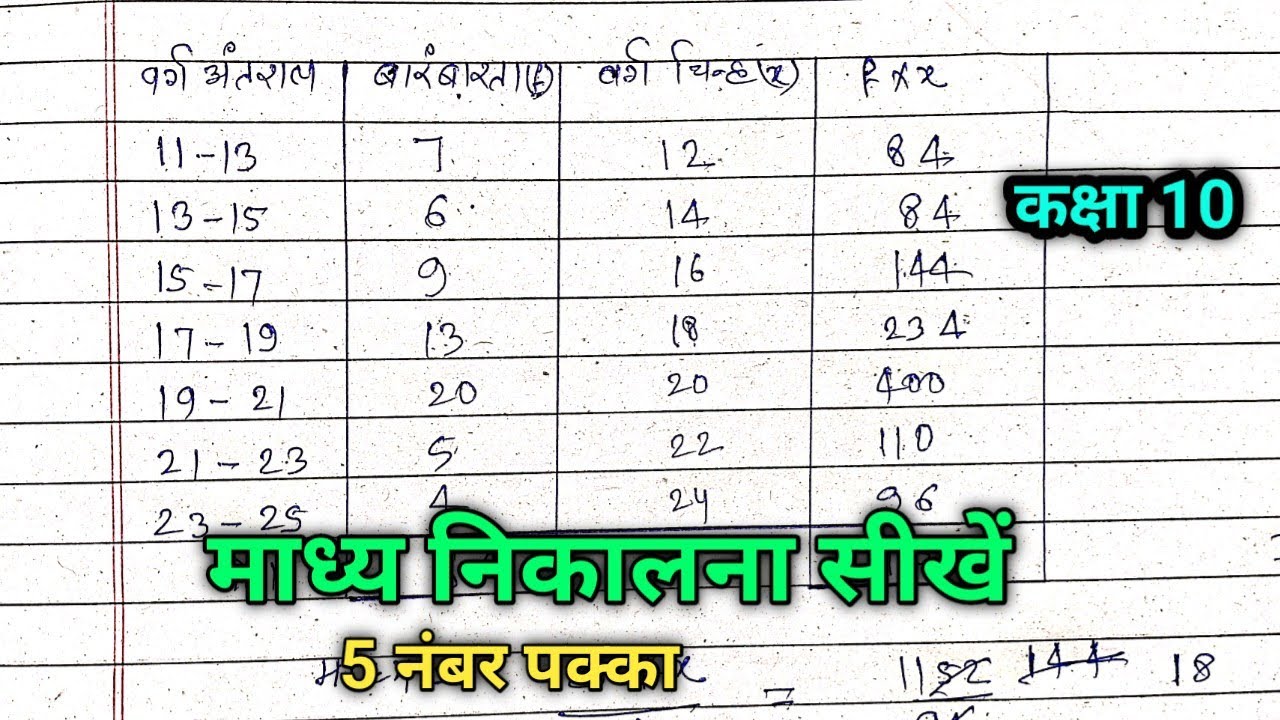 वर्ग अंतराल बारंबारता(f) वर्ग चिन्ह(x) f×x
11-13 7 12 84
13-15 6 14 84
कक्षा 10
15-17 9 16 144
17-19 13 18 234
19-21 20 20 400
21-23 5 22 110
23-25 4 24 96
माध्य निकालना सीखें
5 नंबर पक्का
= 144 18